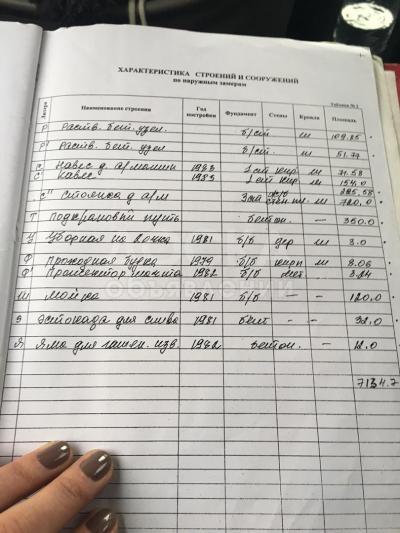 ХАРАКТЕРИСТИКА СТРОЕНИЙ И СООРУЖЕНИЙ
по наружным замерам
Таблица № 2
Литера Наименование строения Год постройки Фундамент Стены Кровля Площадь
Р Раств. бет. узел б/ст ш 109.85
Р' Раств. бет. узел б/ст. ш 51.77
С Навес д. 1983 ш 71.58
С' Навес 1983 ш 154.0
С" Стоянка д а/м ш 720.0
Т Подкрановый путь бетон. — 350.0
У Уборная на 2 очка 1981 б/б дер ш 3.0
Ф Проходная будка 1979 б/б кирп ш 8.06
Ф' 1982 б/б мет — 3.24
Ш мойка 1981 б/б — — 120.0
Э Эстокада для слива 1981 бет — — 32.0
Я Яма для гашен. изв. 1982 бетон. — 12.0
7134.7